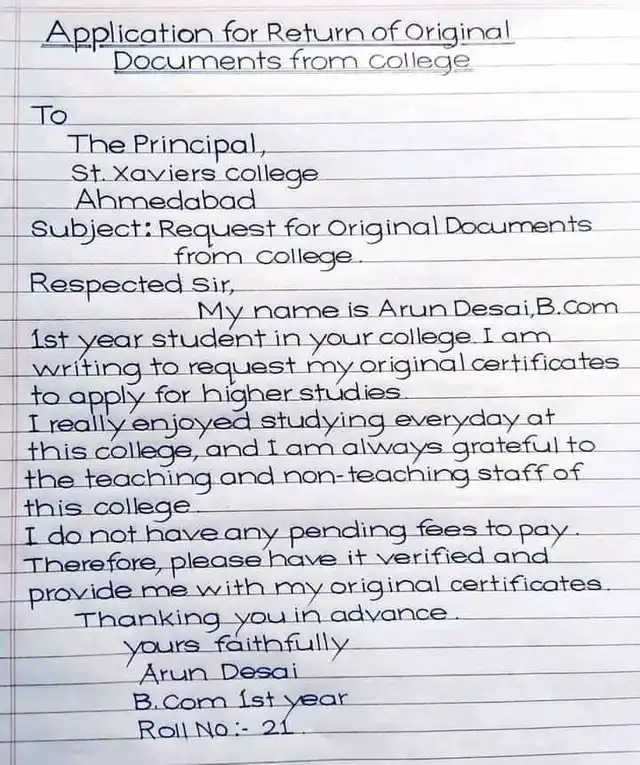 Application for Return of Original
Documents from college
To
The Principal,
St. Xaviers college
Ahmedabad
Subject: Request for Original Documents
from college.
Respected Sir,
My name is Arun Desai, B.Com
1st year student in your college. I am
writing to request my original certificates
to apply for higher studies.
I really enjoyed studying everyday at
this college, and I am always grateful to
the teaching and non-teaching staff of
this college.
I do not have any pending fees to pay.
Therefore, please have it verified and
provide me with my original certificates.
Thanking you in advance.
yours faithfully
Arun Desai
B.Com 1st year
Roll No:- 21.